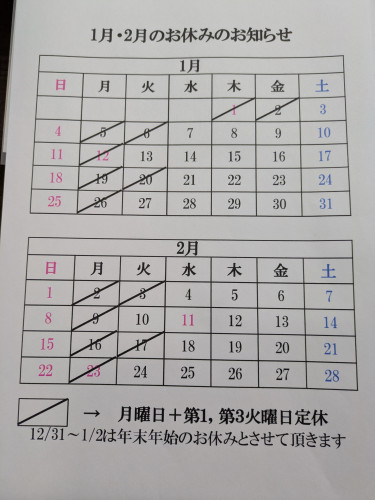 1月・2月のお休みのお知らせ
1月
日 月 火 水 木 金 土
1 2 3
4 5 6 7 8 9 10
11 12 13 14 15 16 17
18 19 20 21 22 23 24
25 26 27 28 29 30 31
2月
日 月 火 水 木 金 土
1 2 3 4 5 6 7
8 9 10 11 12 13 14
15 16 17 18 19 20 21
22 23 24 25 26 27 28
→ 月曜日＋第1,第3火曜日定休
12/31～1/2は年末年始のお休みとさせて頂きます